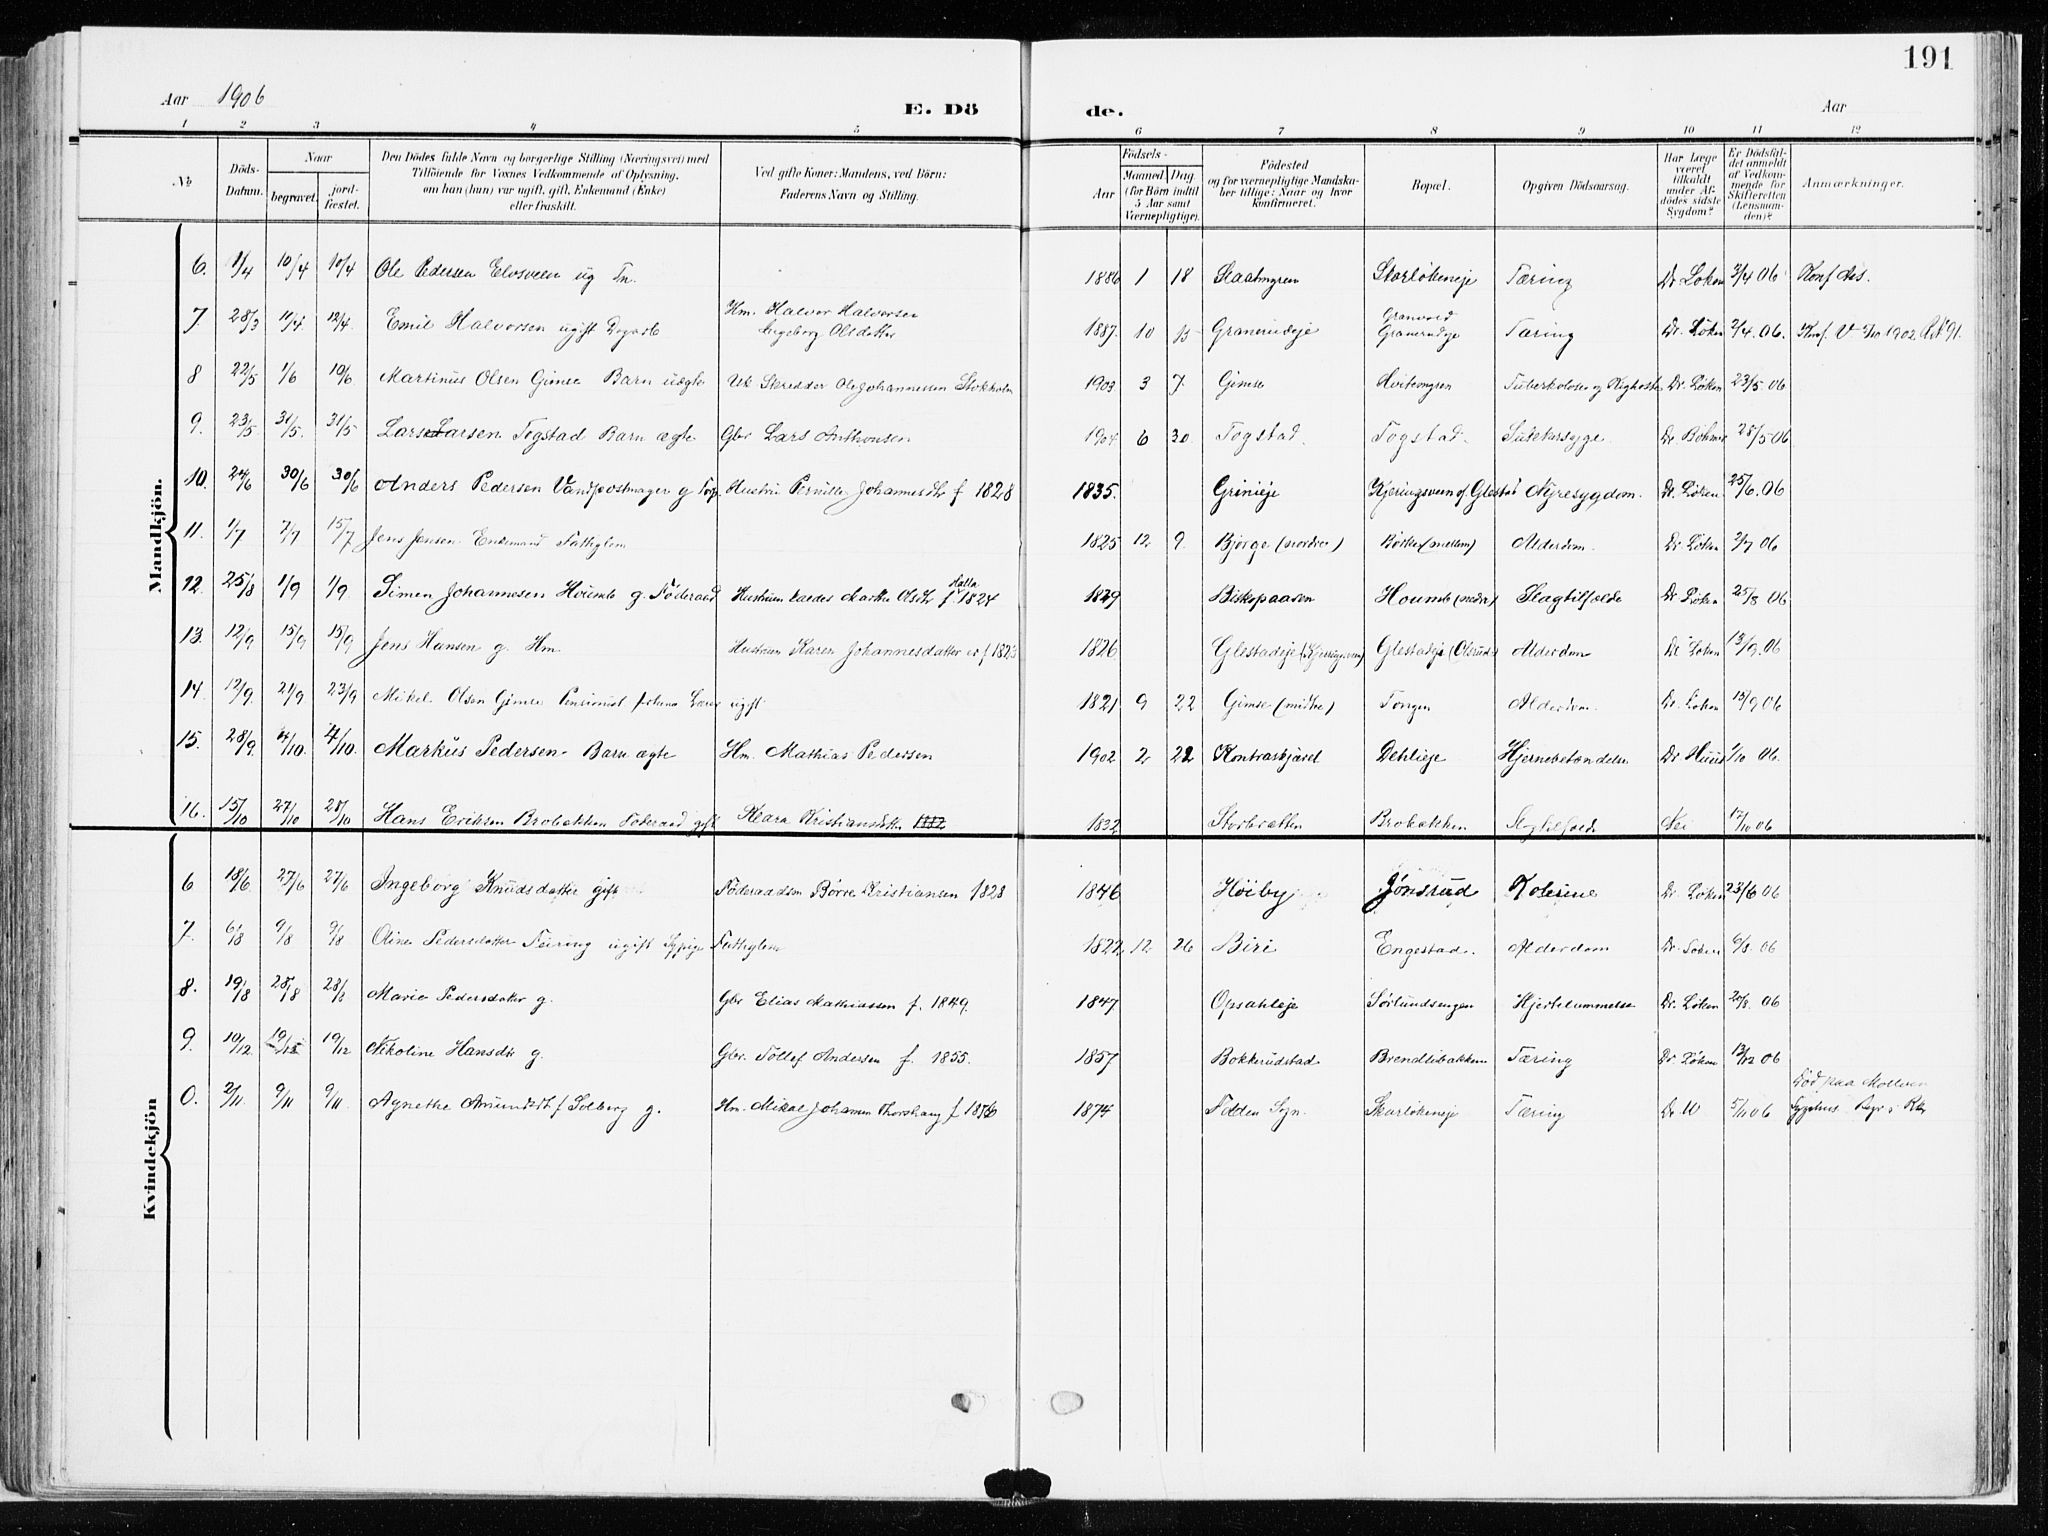 191
Aar 1906
E. Dö de.
Aar
1 2 3 4 5 6 7 8 9 10 11 12
No
Döds-Datum.
Naar
begravet.
jord-fæstet.
Den Dödes fulde Navn og borgerlige Stilling (Næringsvei) med
Tilföiende for Voxnes Vedkommende af Oplysning,
om han (hun) var ugift, gift, Enkemand (Enke)
eller fraskilt.
Ved gifte Koner: Mandens, ved Börn:
Faderens Navn og Stilling.
Födsels-
Aar
Maaned Dag
(for Börn indtil
5 Aar samt
Værnepligtige).
Födested
og for værnepligtige Mandska-
ber tillige: Naar og hvor
konfirmeret.
Bopæl.
Opgiven Dödsaarsag.
Har Læge
været
tilkaldt
under Af-
dödes sidste
Sygdom?
Er Dödsfal-
det anmeldt
af Vedkom-
mende for
Skifteretten
(Lensman-
den)?
Anmærkninger.
Mandkjön.
6. 1/4 10/4 10/4 Ole Pedersen Elvsveen ug 1886 1 18 Skarlökeneje Tæring Dr Löken 3/4 06 Konf
7. 28/3 12/4 Emil Halvorsen ugift Hm. Halvor Halvorsen
Ingeborg Olsdatter 1887. 10 Granerudeje Granvold
Granerudeje Tæring Dr. Löken 2/4.06. Konf. 1902
8 22/5 1/6 10/6 Martinus Olsen Gimse Barn uægte Skrædder Ole Johannessen Stokholm 1903 3 7. Gimse Hvitvengen Tuberkolose og Kighoste Dr Löken 23/5 06
9. 23/5 31/5. 31/5 Lars Larsen Togstad Barn ægte Gbr Lars Anthonsen 1904 6 30. Togstad. Togstad. Dr. 28/5 06
10. 24/6 30/6 30/6 Anders Pedersen Vandpostmager g Hustru Pernille Johannesdtr f 1828 1835. Grinieje Kjeringsveen Glestad Nyresygdom. Dr. Löken. 25/6.06
11. 1/7 7/7 15/7 Jens Jensen Enkemand Fattiglem 1825 12 9. Bjørge (nordre) (mellem) Alderdom. Dr Löken 2/7 06
12. 25/8 1/9 1/9 Simen Johannesen Houmb g. Föderaad Hustruen Marthe Olsdtr f. 1824 1829 Biskopaasen Houmb (nedre) Slagtilfælde Dr. Löken 25/8 06
13. 12/9 15/9 15/9 Jens Hansen g. Hm. Hustruen Karen Johannesdatter er f 1823 1826 Glestadeje (Kjeringsveen) Glestadeje (Olsrud) Alderdom Dr Löken 13/9.06
14. 12/9. 21/9 23/9 Mikel Olsen Gimse Pensionist ugift 1821 9 22 Gimse (midtre) Tongen Alderdom. Dr. Löken 13/9 06
15. 28/9. 4/10. 4/10. Markus Pedersen. Barn ægte Hm. Mathias Pedersen 1902 2 22 Kontraskjæret Dehlieje Hjernebetændelse Dr. Huus 1/10 06.
16. 15/10 27/10 28/10 Hans Eriksen Brobakken Föderaad gift Klara Kristiansdatter 1832 Storbratten Brobakken Slagtilfælde Nei 17/10 06
Kvindekjön
6 18/6 27/6 27/6 Ingeborg Knudsdatter gift Föderaadsm Börre Kristiansen 1828 1846 Höiby Jönsrud Kolerine Dr. Löken 23/6 06
7. 6/8 9/8 9/8 Oline Pedersdatter Feiring ugift Sypige Fattiglem 1822 12 26 Biri Engestad. Alderdom Dr. Löken 6/8. 06
8. 19/8 28/8 28/8 Marie Pedersdatter g. Gbr Elias Mathiassen f. 1849. 1847. Opsahleje Sörlundsengen Hjertelammelse Dr. Löken 20/8. 06
9. 10/12 19/12 19/12 Nikoline Hansdtr g. Gbr. Tollef Andersen f. 1855. 1857 Bokkerudstad Brendlibakken Tæring Dr Löken 13/12 06
0. 2/11. 9/11 9/11. Agnethe Amundsdt. f Solberg g. Hm. Mikal Johannsen Thorshaug f 1876 1874 Fodden Sogn. Skarlökeneje Tæring Dr W 5/11 06 Död paa
Sygehus